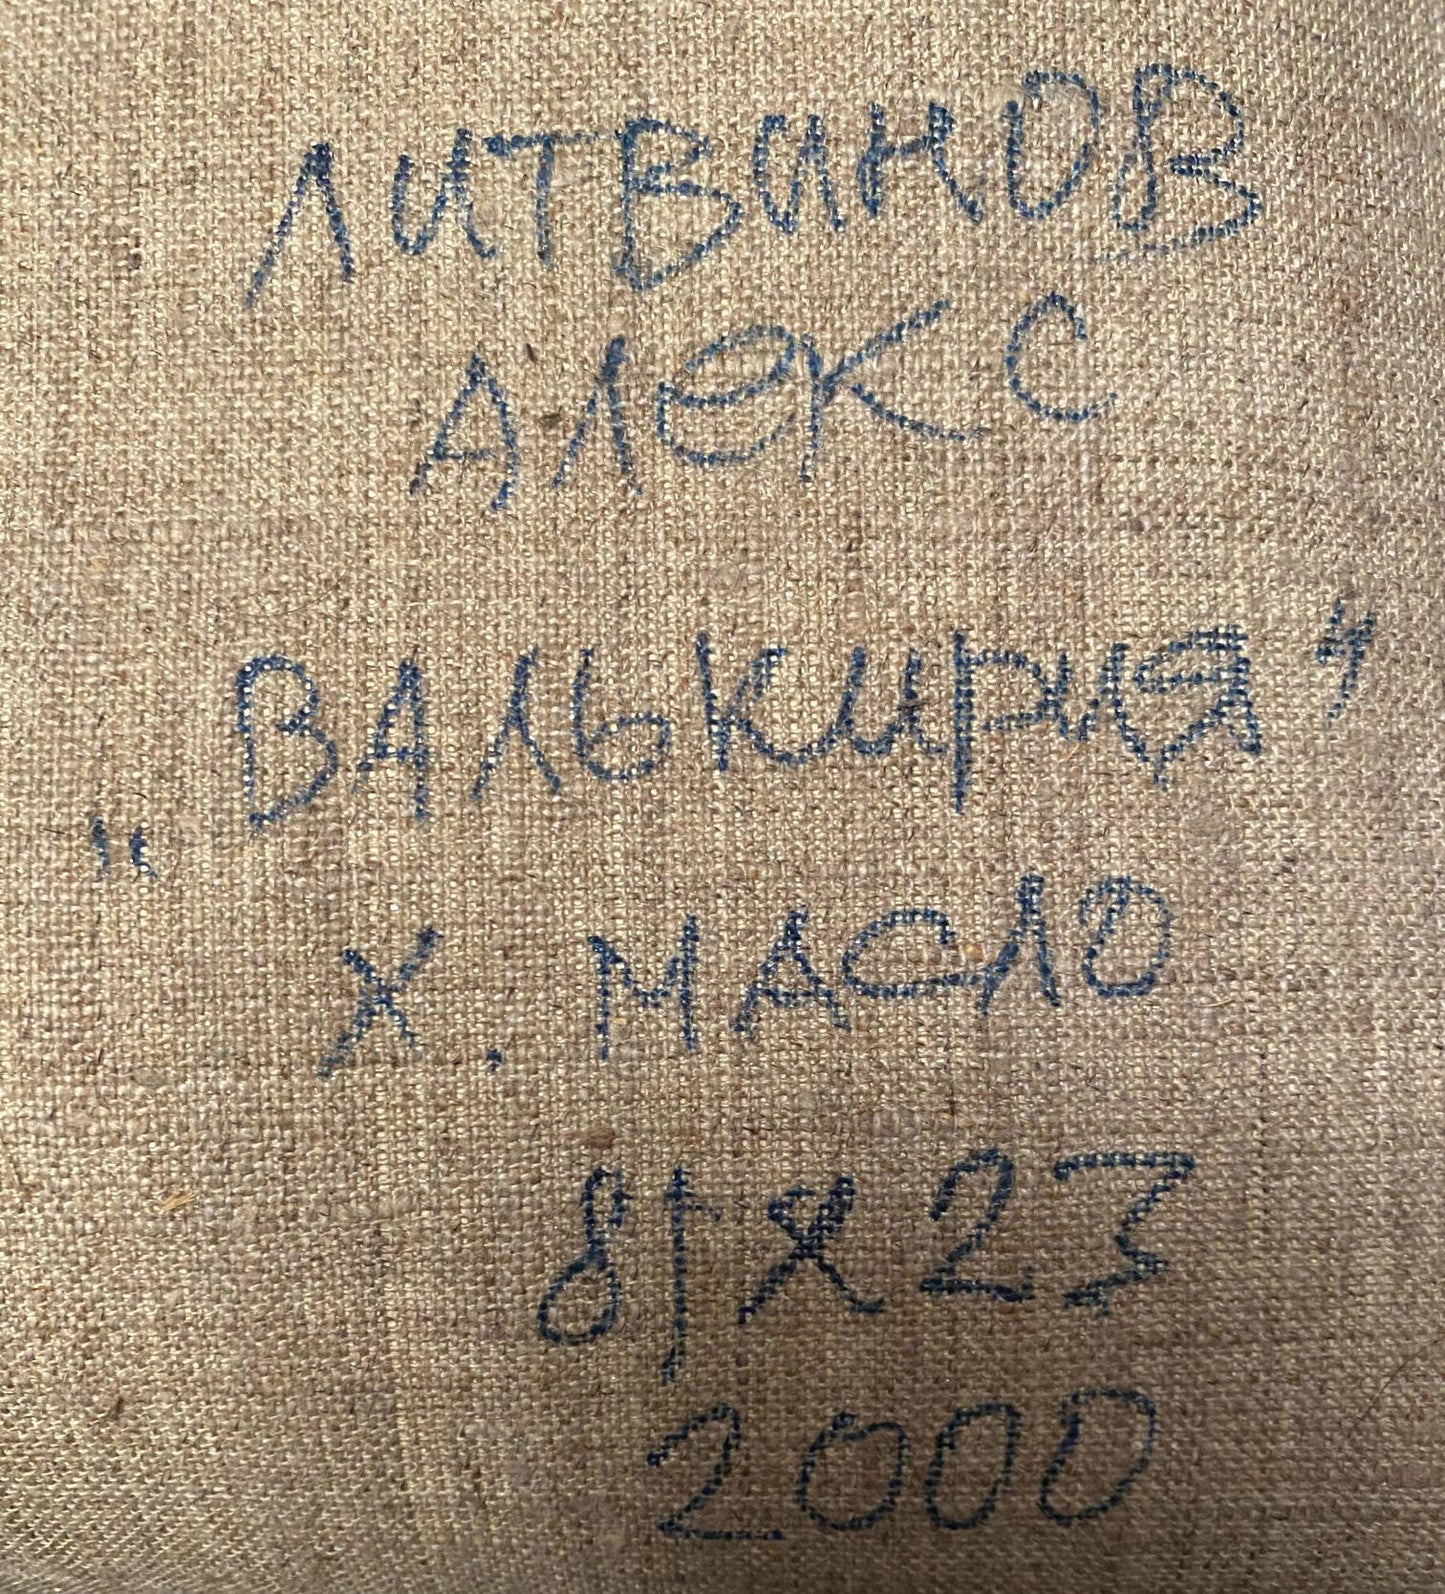 ЛИТВИНОВ
АЛЕКС
„ВАЛЬКИРИЯ”
Х. МАСЛО
х 23
2000